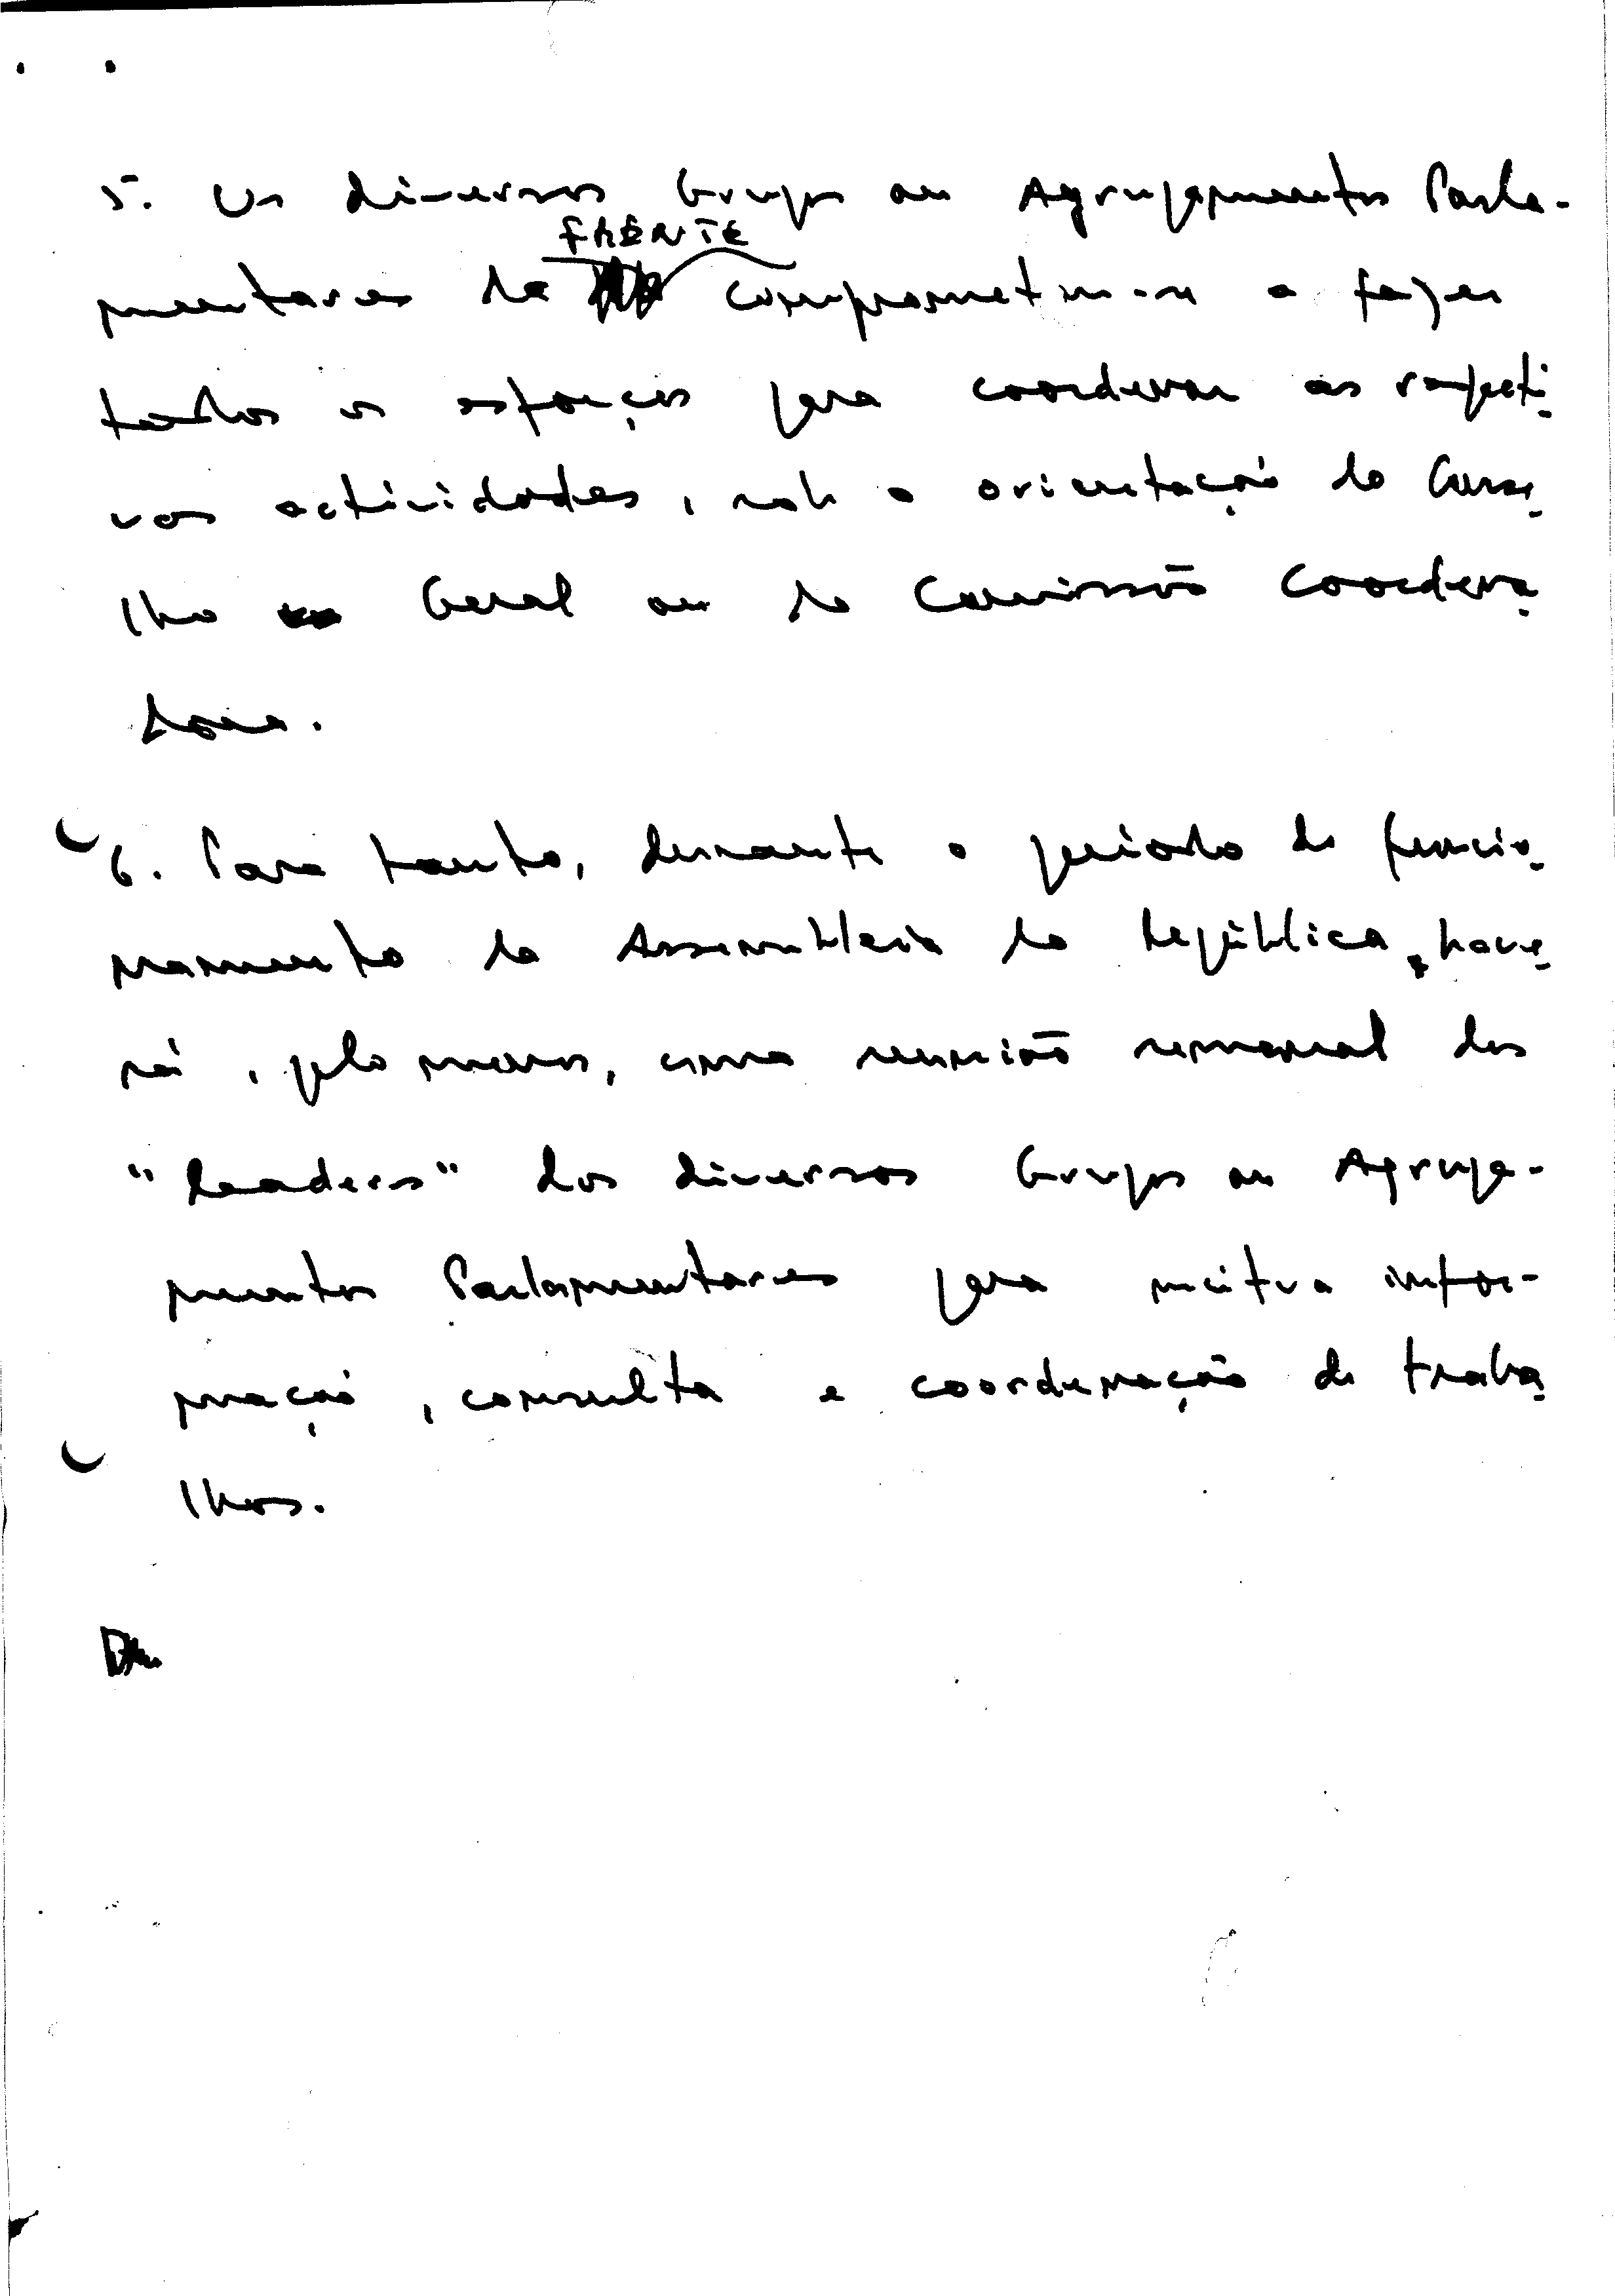 5. Os diversos Grupos ou Agrupamentos Parla-
FRENTE
mentares da comprometem-se a fazer
todos os esforços para coordenar as respecti
vas actividades, sob a orientação do Conse
lho Geral ou da Comissão Coordena
dora.
6. Para tanto, durante o período de funcio
namento da Assembleia da República, have
rá, pelo menos, uma reunião semanal dos
"leaders" dos diversos Grupos ou Agrupa-
mentos Parlamentares para mútua infor-
mação, consulta e coordenação de traba
lhos.